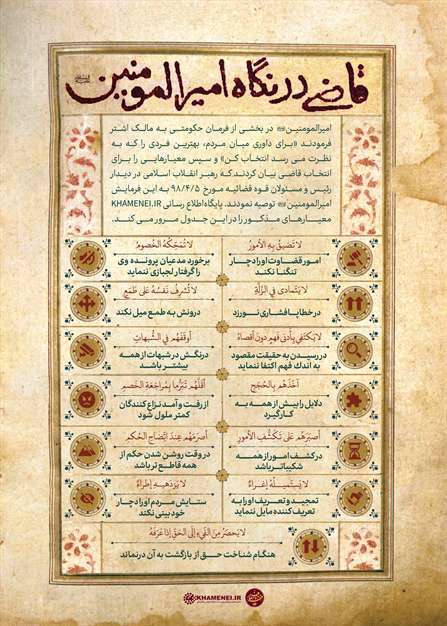 قاضی در نگاه امیرالمومنین
امیرالمومنین در بخشی از فرمان حکومتی به مالک اشتر
فرمودند «برای داوری میان مردم، بهترین فردی را که به
نظرت می رسد انتخاب کن» و سپس معیارهایی را برای
انتخاب قاضی بیان کردند که رهبر انقلاب اسلامی در دیدار
رئیس و مسئولان قوه قضائیه مورخ ۹۸/۴/۵ به این فرمایش
امیرالمومنین توصیه نمودند. پایگاه اطلاع رسانی KHAMENEI.IR
معیارهای مذکور را در این جدول مرور می کند.
لا تَضیقُ بِهِ الاُمورُ
امور قضاوت او را دچار
تنگنا نکند
لا تُمَحِّکُهُ الخُصومُ
برخورد مدعیان پرونده وی
را گرفتار لجبازی ننماید
لا یَتَمادی فِی الزَّلَّةِ
در خطا پافشاری نورزد
لا تُشرِفُ نَفسُهُ عَلی طَمَعٍ
درونش به طمع میل نکند
لا یَکتَفی بِاَدنی فَهمٍ دونَ اَقصاهُ
در رسیدن به حقیقت مقصود
به اندک فهم اکتفا ننماید
اَوقَفَهُم فِی الشُّبُهاتِ
درنگش در شبهات از همه
بیشتر باشد
آخَذَهُم بِالحُجَجِ
دلایل را بیش از همه به
کار گیرد
اَقَلَّهُم تَبَرُّماً بِمُراجَعَةِ الخَصمِ
از رفت و آمد نزاع کنندگان
کمتر ملول شود
اَصبَرَهُم عَلی تَکَشُّفِ الاُمورِ
در کشف امور از همه
شکیباتر باشد
اَصرَمَهُم عِندَ اتِّضاحِ الحُکمِ
در وقت روشن شدن حکم از
همه قاطع تر باشد
لا یَستَمیلُهُ اِغراءٌ
تمجید و تعریف او را به
تعریف کننده مایل ننماید
لا یَزدَهیهِ اِطراءٌ
ستایش مردم او را دچار
خودبینی نکند
لا یَحصَرُ مِنَ الفَیءِ اِلَی الحَقِّ اِذا عَرَفَهُ
هنگام شناخت حق از بازگشت به آن درنماند
KHAMENEI.IR